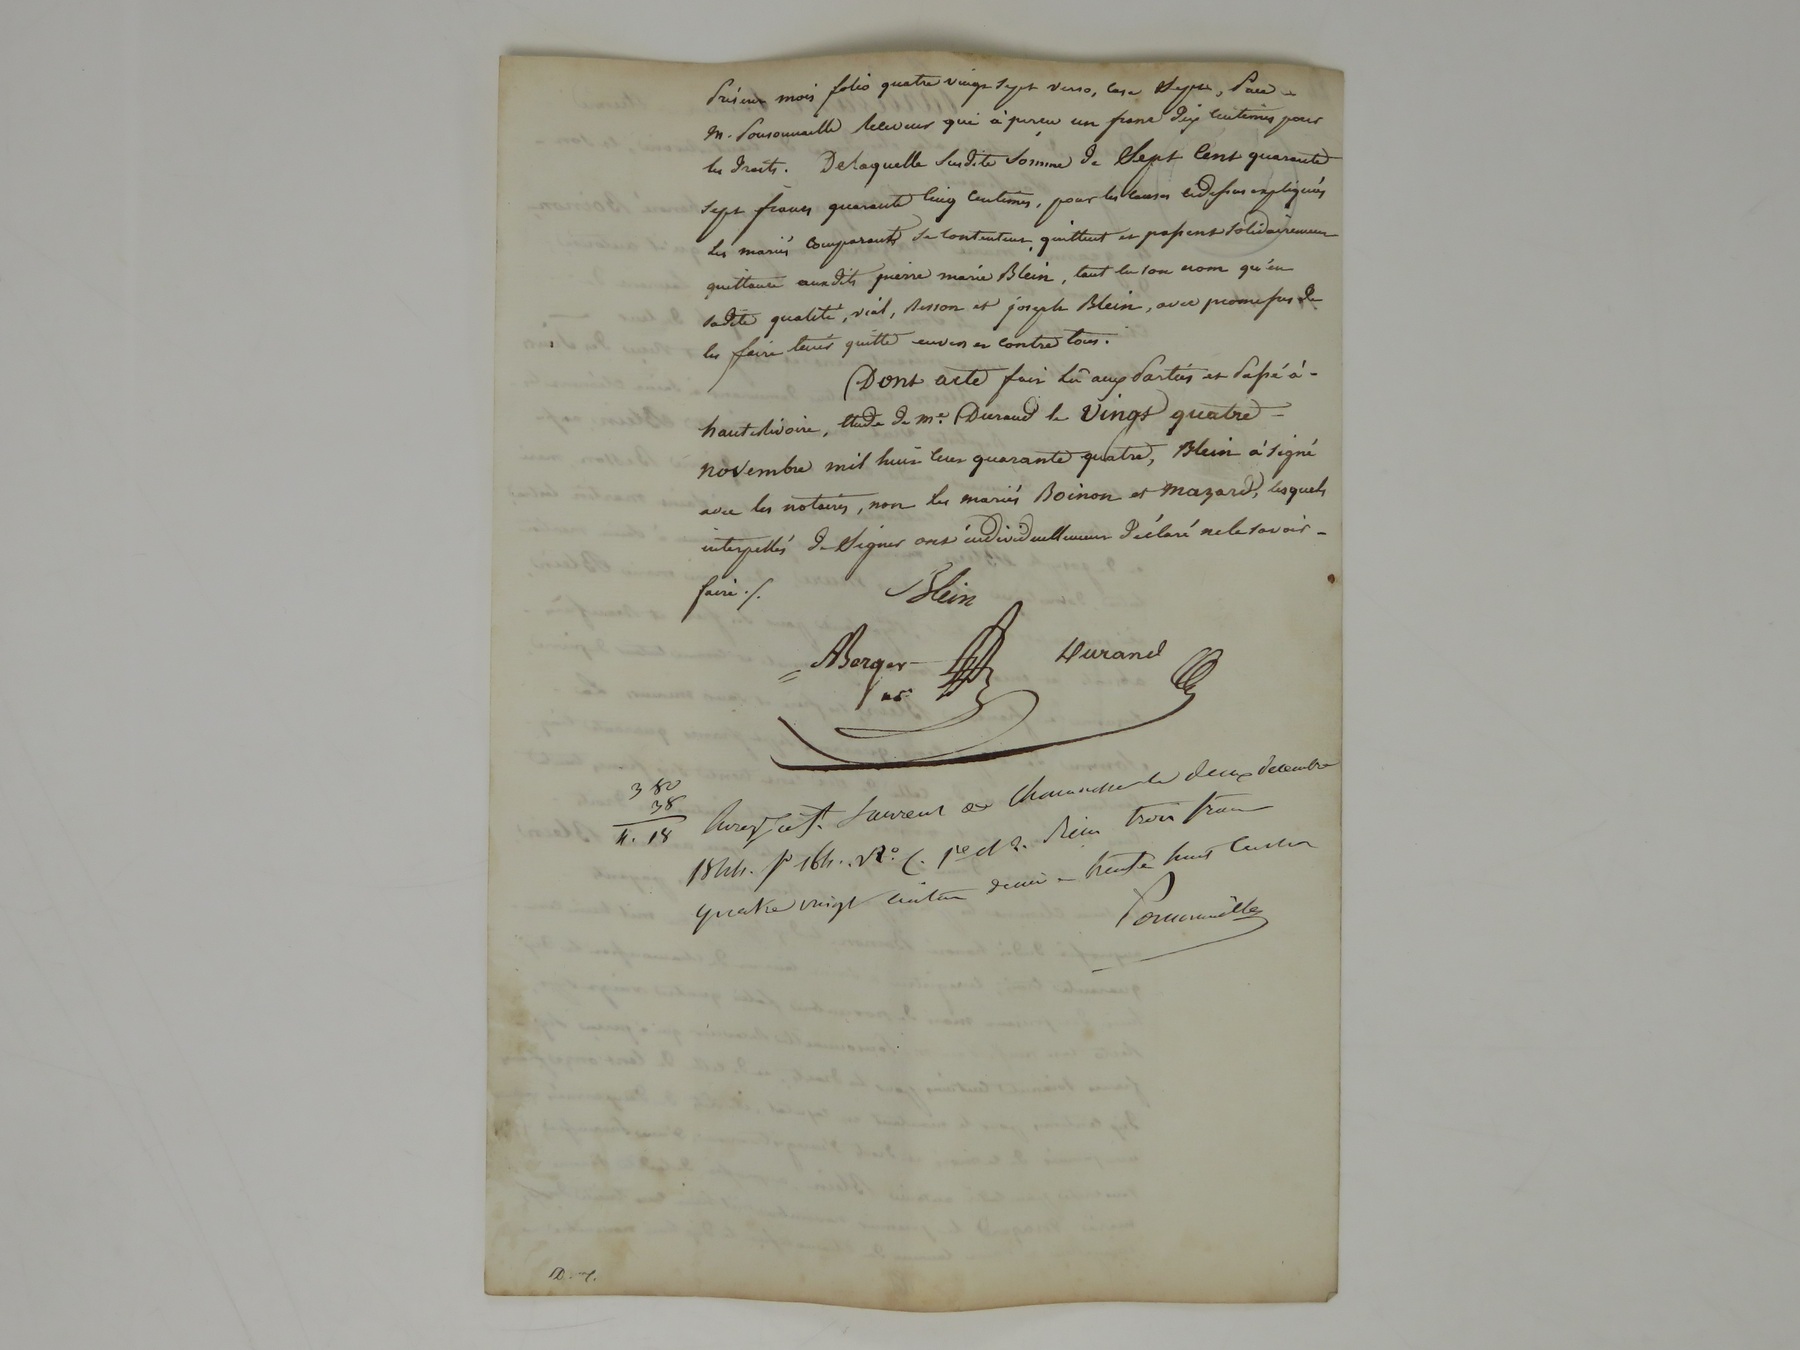 présent mois folio quatre vingt sept verso, case sept, par
m. Ponsonnaille receveur qui à perçu un franc dix centimes pour
les droits. De laquelle susdite somme de Sept Cent quarante
sept francs quarante cinq centimes, pour les causes cidessus expliquées
les mariés comparants se contentent, quittent et passent solidairement
quittance auxdits pierre marie Blein, tant en son nom qu'en
sadite qualité, vial, Besson et joseph Blein, avec promesses de
les faire tenir quitte envers et contre tous.
Dont acte fait lû aux parties et passé à
hauterivoire, étude de me. Durand le vingt quatre
novembre mil huit cent quarante quatre, Blein à signé
avec les notaires, non les mariés Boinon et mazard, lesquels
interpellés de signer ont individuellement déclaré ne le savoir
faire ./.
Blein
Berger Durand
nre
3 80
38
4. 18
Enregt à St. Laurent de Chamousset le deux décembre
1844. fo 164. Vo. C. 1re et 2. Reçu trois francs
quatre vingt centimes décime trente huit centimes
Ponsonnaille